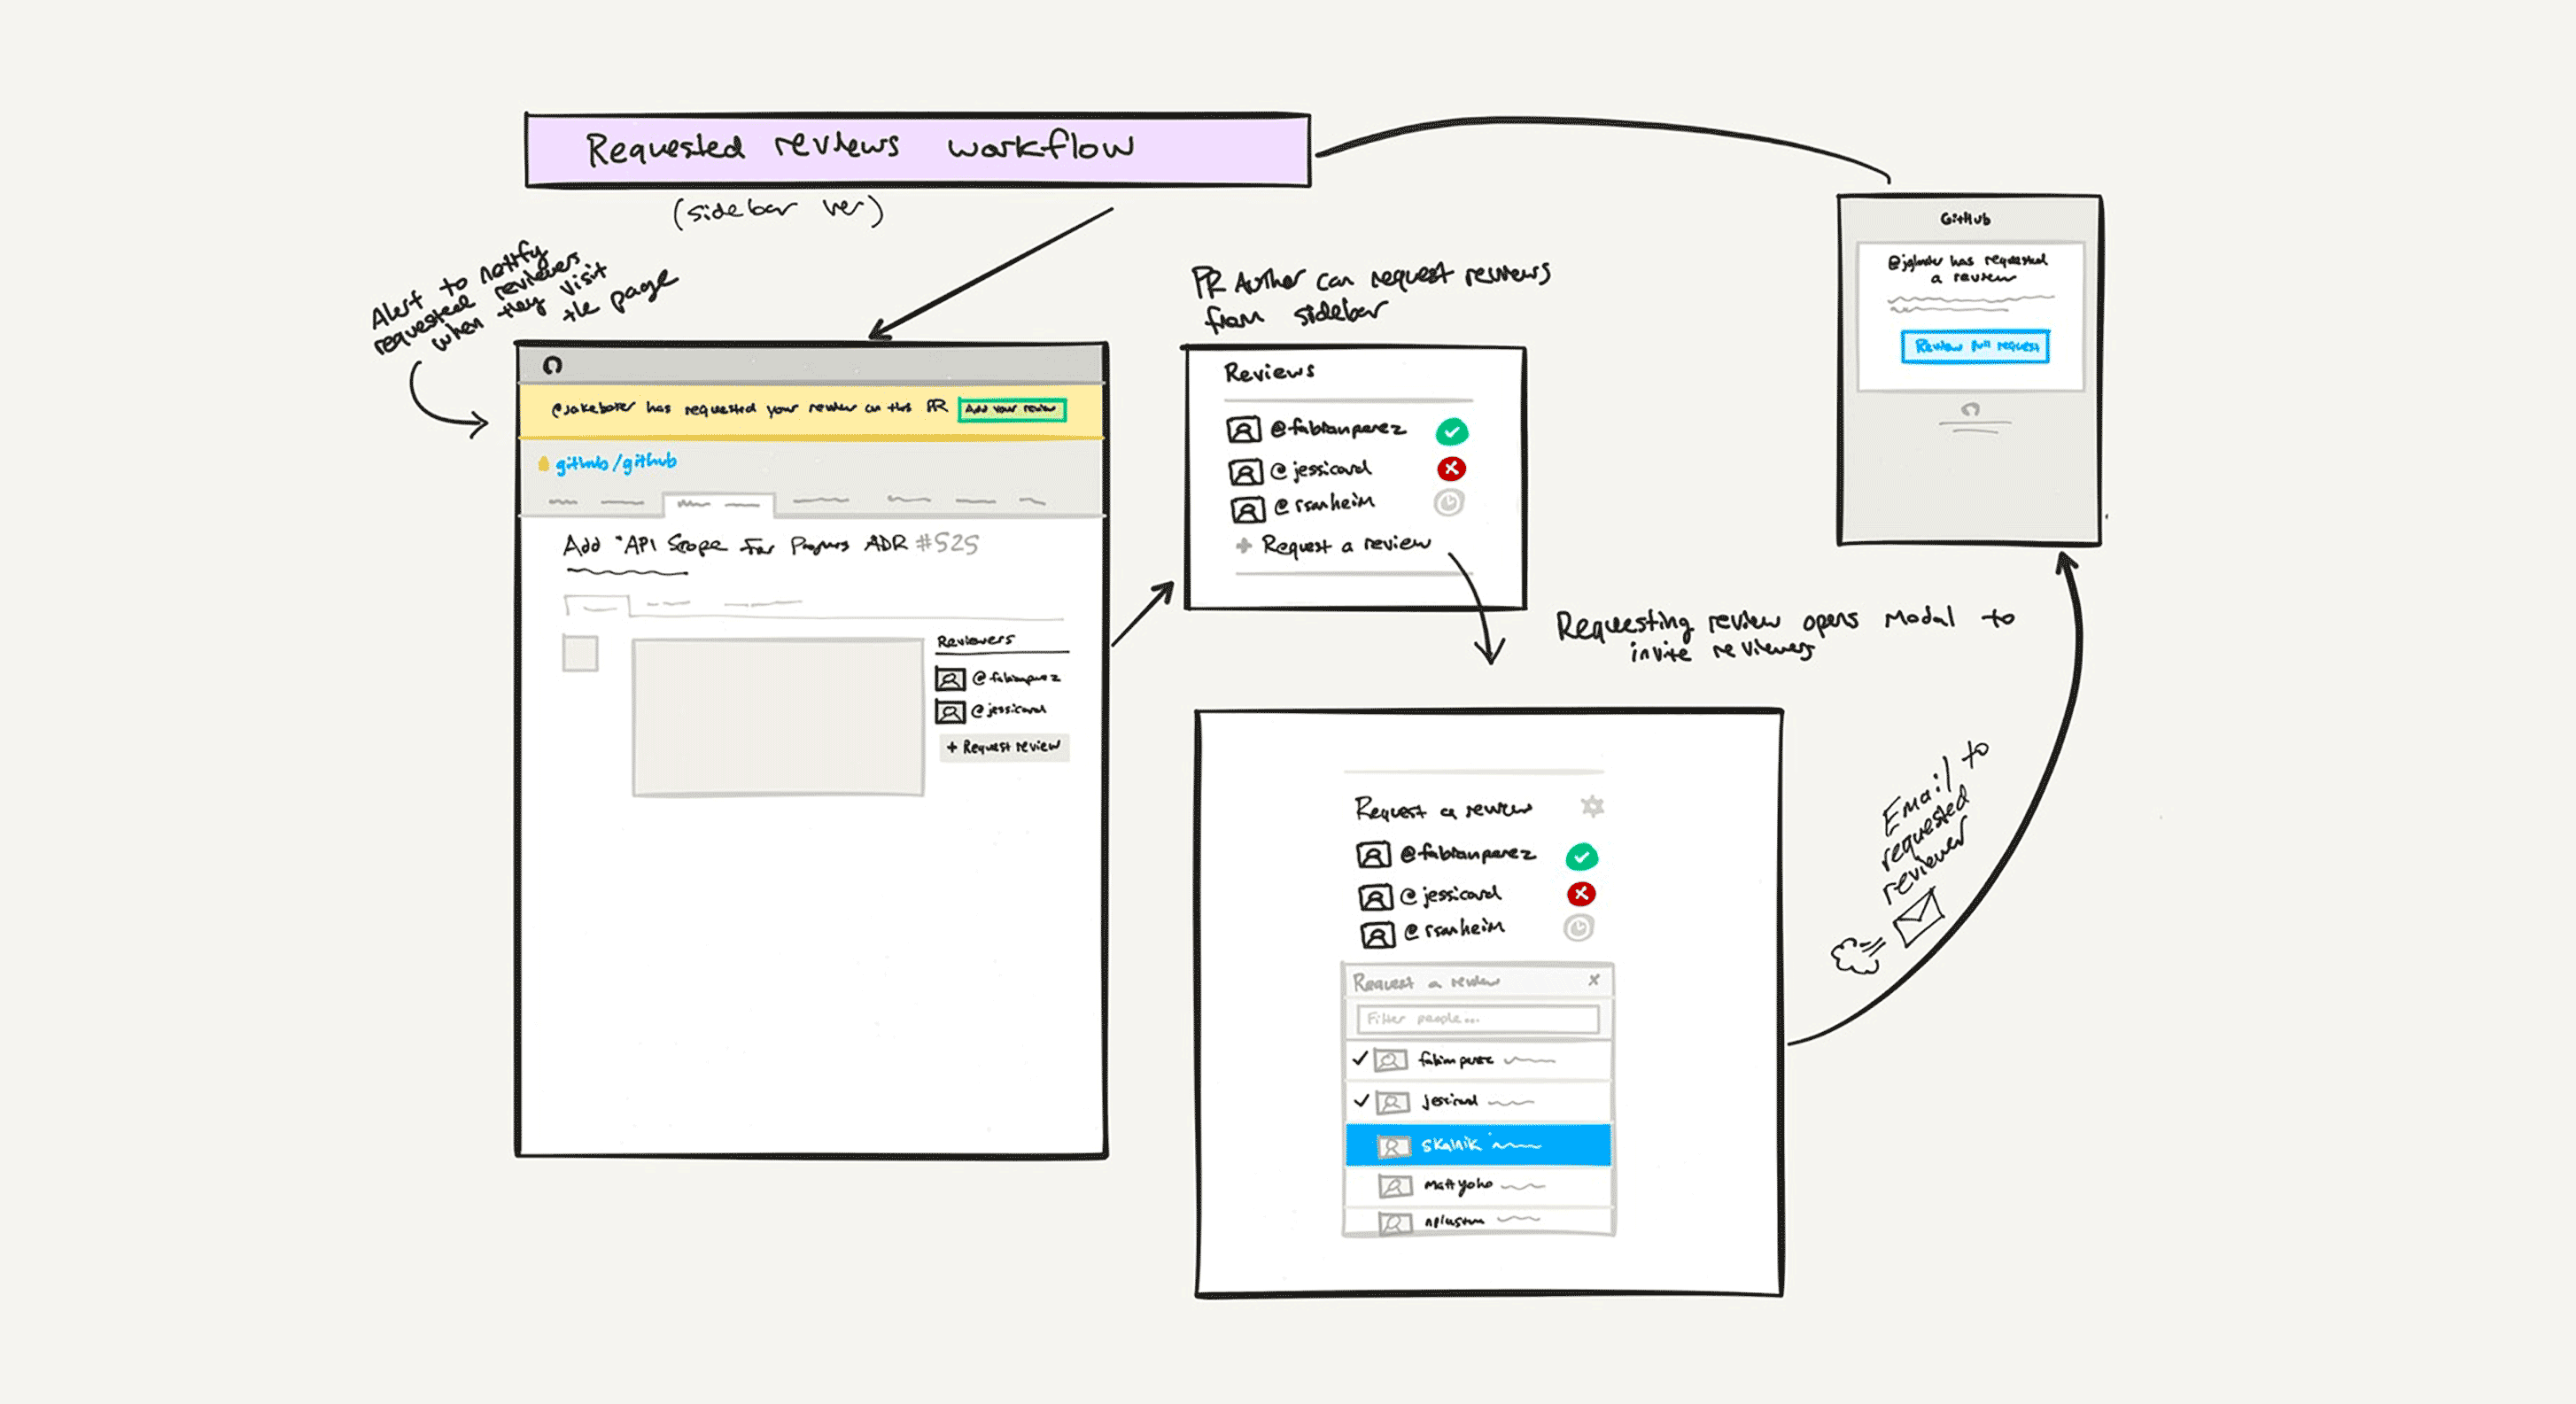 Requested reviews workflow
(sidebar ver)
Alert to notify
requested reviewers
when they visit
the page
@jakeboxer has requested your review on this PR
Add your review
github/github
Add "API Scope For Projects ADR #525
Reviewers
@fabianperez
@jessicard
+ Request review
PR Author can request reviews
from sidebar
Reviews
@fabianperez
@jessicard
@rsanheim
+ Request a review
Requesting review opens modal to
invite reviewers
Request a review
@fabianperez
@jessicard
@rsanheim
Request a review x
Filter people...
fabianperez
jessicard
skalnik
mattyoho
Email to
requested
reviewer
GitHub
has requested
a review
Review pull request